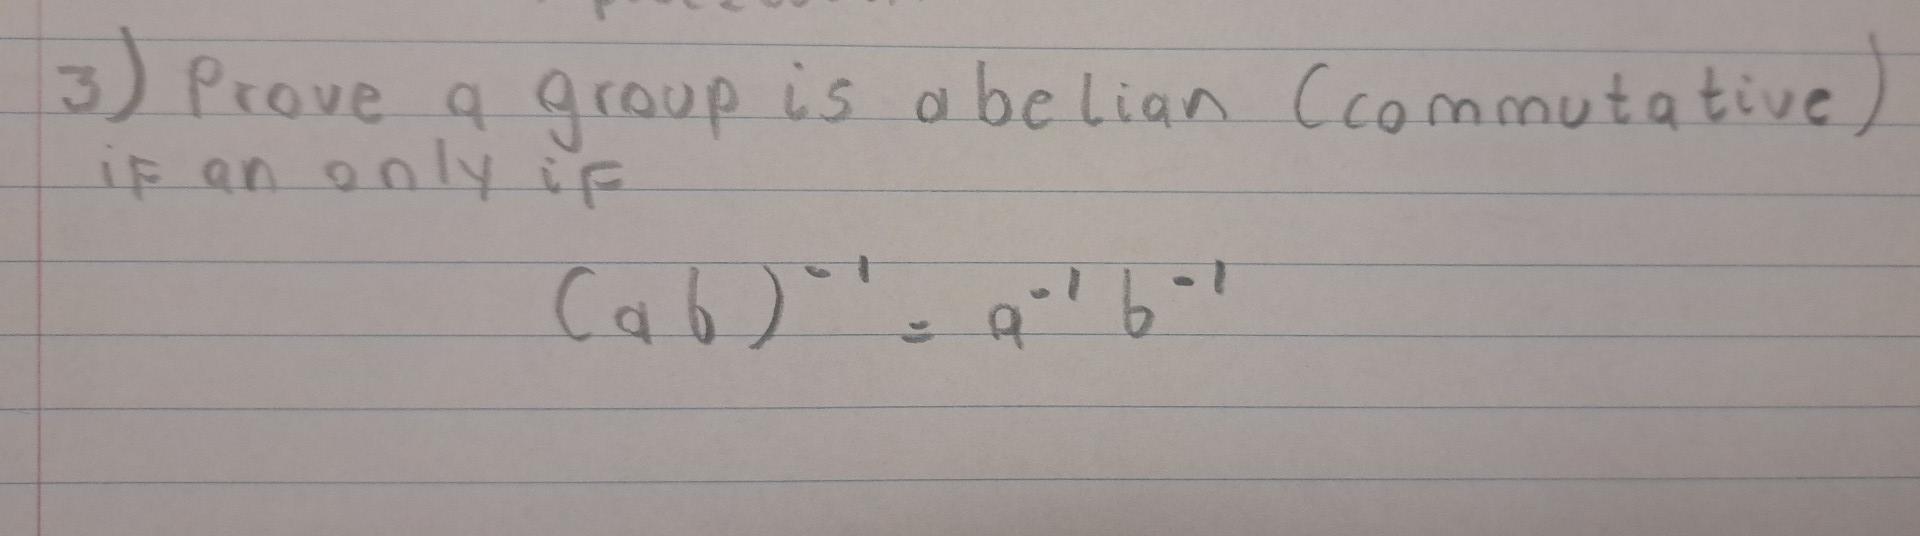 3) Prove a group is abelian (commutative)
if an only if
(ab)⁻¹ = a⁻¹ b⁻¹